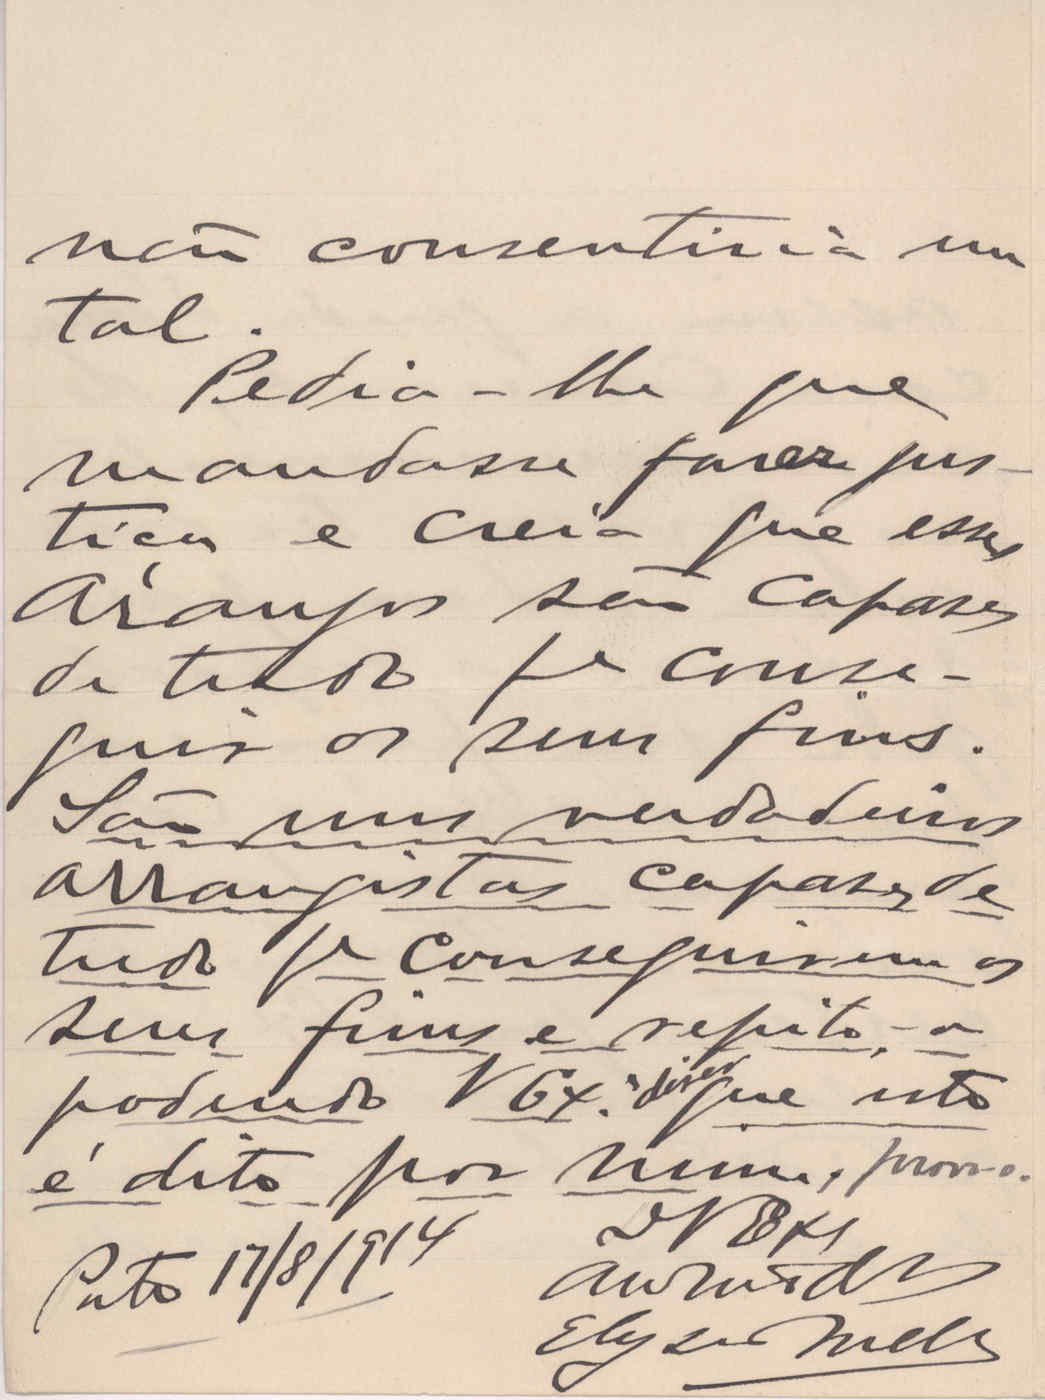 não consentiria um
tal.
Pedia-lhe que
mandasse fazer jus-
tiça e creia que esses
Araujos são capazes
de tudo pª conse-
guir os seus fins.
São uns verdadeiros
arrangistas capazes de
tudo pª conseguirem os
seus fins e repito-o
podendo V Exª dizer que isto
é dito por mim, provo-o.
D V Exª
Porto 17/8/1914
Elyseu Mello